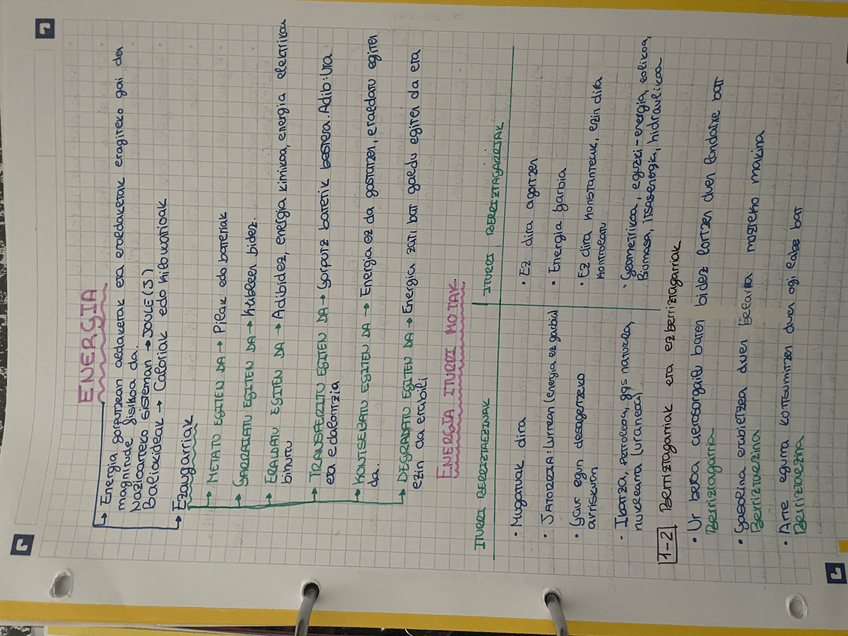 ENERGIA
Energia gorputzean aldaketak eta eraldaketak eragiteko gai den
magnitude fisikoa da.
Nazioarteko sisteman → JOULE (J)
Baliokideak → Caloriak edo kilowatioak
Ezaugarriak
METATU EGITEN DA → Pilak edo bateriak
GARRAIATU EGITEN DA → Kableen bidez.
ERALDATU EGITEN DA → Adibidez, energia kimikoa, energia elektrikoa
bihurtu
TRANSFERITU EGITEN DA → Gorputz batetik bestera. Adib: Ura
eta edalontzia
KONTSEBATU EGITEN DA → Energia ez da gastatzen, eraldatu egiten
da.
DEGRADATU EGITEN DA → Energia zati bat galdu egiten da eta
ezin da erabili
ENERGIA ITURRI MOTAK
ITURRI BERRIZTAEZINAK
• Mugatuak dira
• SATORRIA: lurrean (energia ez garbia)
• Gaur egun desagertzeko
arriskuan
• Ikatza, Petroleoa, gas naturala,
nuklearra (uranioa).
ITURRI BERRIZTAGARRIAK
• Ez dira agortzen
• Energia garbia
• Ez dira konstanteak, ezin dira
kontrolatu
• Geometrikoa, eguzki-energia, eolikoa,
Biomasa, itsasenergia, hidraulikoa
1-2 Berriztagarriak eta ezberriztagarriak
• Ur beroa aerosorgailu baten bidez lortzen duen fondaine bat
Berriztagarria
• Gasolina erabiltzea duen belarra mozteko makina
Berriztaezina
• Arte eguma kontsumitzen duen ogi labe bat
Berriztaezina